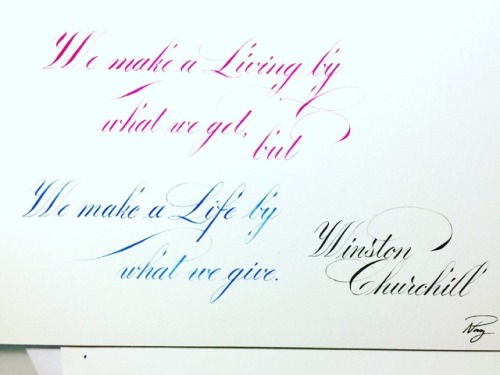 We make a Living by
what we get, but
We make a Life by
what we give.
Winston
Churchill